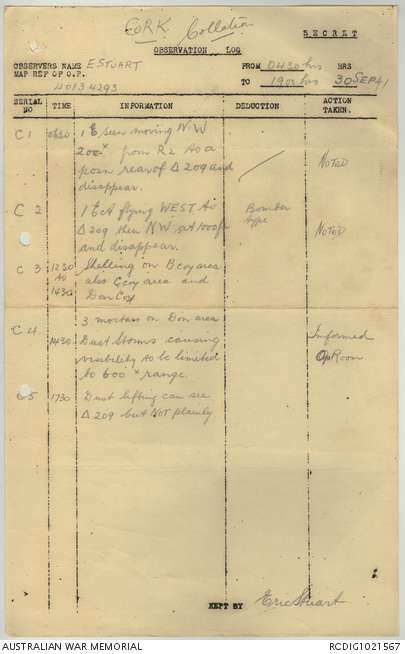 CORK. Collation
SECRET
OBSERVATION LOG
OBSERVERS NAME E STUART FROM 0430 hrs HRS
MAP REF OF O.P. 40134293 TO 1900 hrs 30 SEP 41
SERIAL NO TIME INFORMATION DEDUCTION ACTION TAKEN.
C 1 1 E seen moving N W
200x from R2 to a
posn rear of Δ 209 and
disappear. NOTED
C 2 1 E A flying WEST to Bomber type
Δ 209 then N W at 1000ft
and disappear. NOTED
C 3 1230 to 1430 Shelling on B coy area
also C coy area and
Don Coy
C 4 3 mortars on Don area
1430 Dust Storms causing Informed
visibility to be limited Op Room
to 600x range.
C 5 1730 Dust lifting can see
Δ 209 but NOT plainly
KEPT BY Eric Stuart
AUSTRALIAN WAR MEMORIAL RCDIG1021567